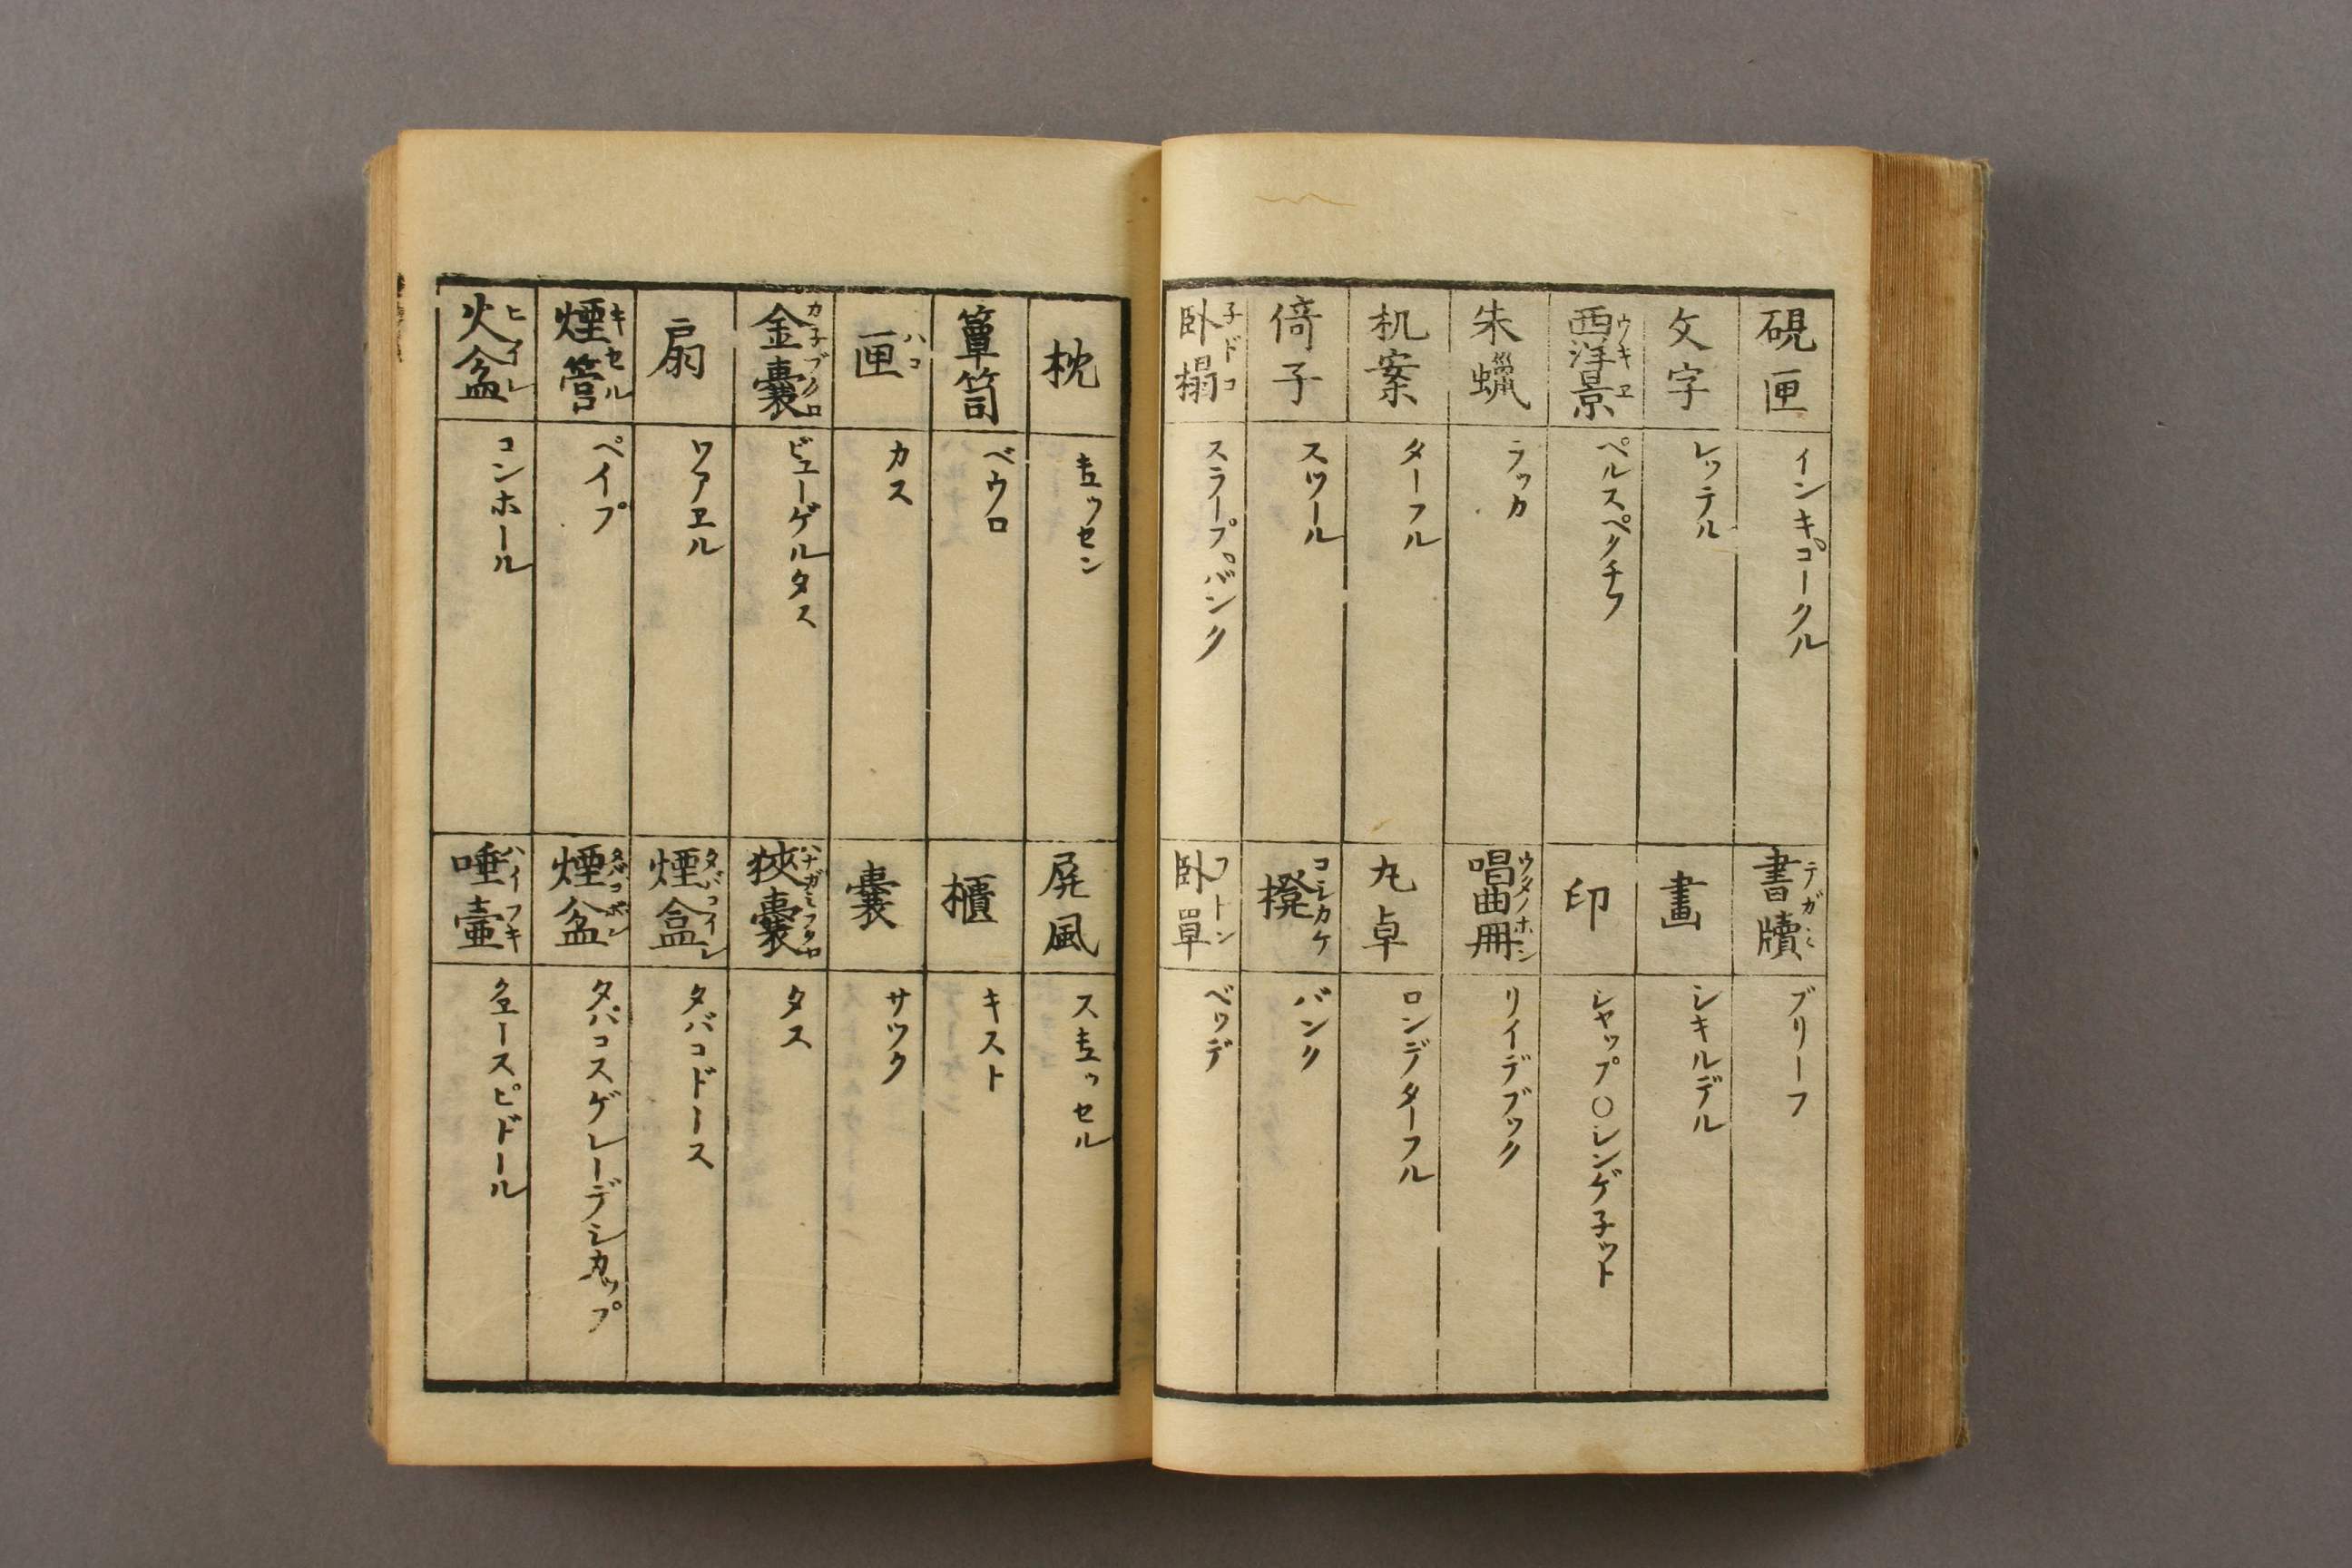 硯匣 インキコークル
書牘 テガミ ブリーフ
文字 レッテル
畫 シキルデル
西洋景 ウキヱ ペルスペクチフ
印 シャップ○レンゲ子ット
朱蠟 ラッカ
唱曲冊 ウタノホン リイデブック
机案 ターフル
丸卓 ロンデターフル
倚子 スツール
橙 コシカケ バンク
臥榻 子ドコ スラープバンク
臥單 フトン ベッデ
枕 キュッセン
屏風 スキュッセル
簞笥 ベウロ
櫃 キスト
匣 ハコ カス
嚢 サック
金嚢 カ子ブクロ ビューゲルタス
狹嚢 ハナガミフクロ タス
扇 ワアヱル
煙盒 タバコイレ タバコドース
煙管 キセル ペイプ
煙盆 タバコボン タバコスゲレーデシカップ
火盆 ヒイレ コンホール
唾壷 ハイフキ クヱースピドール